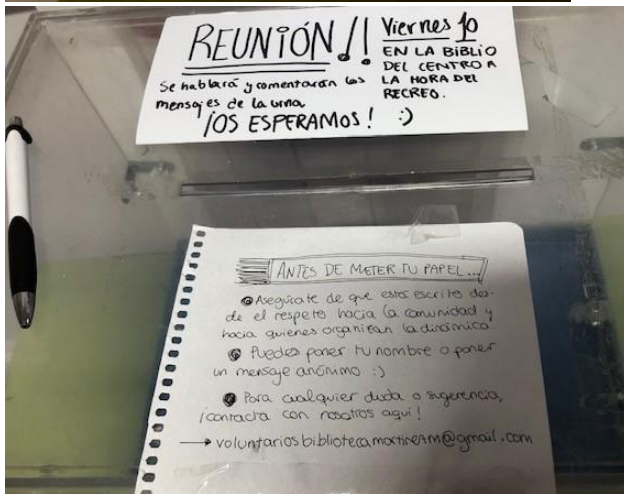 REUNIÓN!!
Se hablará y comentarán los
mensajes de la urna
¡OS ESPERAMOS! :)
Viernes 10
EN LA BIBLIO
DEL CENTRO A
LA HORA DEL
RECREO.
ANTES DE METER TU PAPEL...
Asegúrate de que está escrito des-
de el respeto hacia la comunidad y
hacia quienes organizan la dinámica.
Puedes poner tu nombre o poner
un mensaje anónimo :)
Para cualquier duda o sugerencia,
¡contacta con nosotros aquí!
→ voluntariosbiblioteca@gmail.com